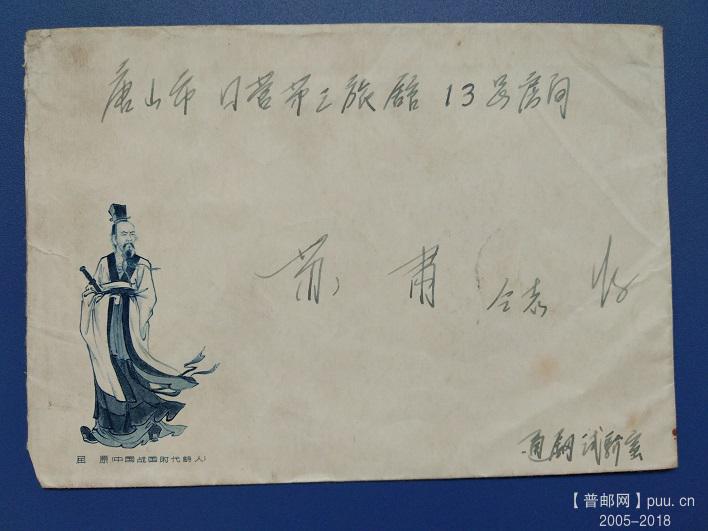 唐山市 国营第三旅館 13号房间
苏 肃 仝志 收
通钢试验室
屈 原(中国战国时代詩人)
【普邮网】puu.cn
2005-2018